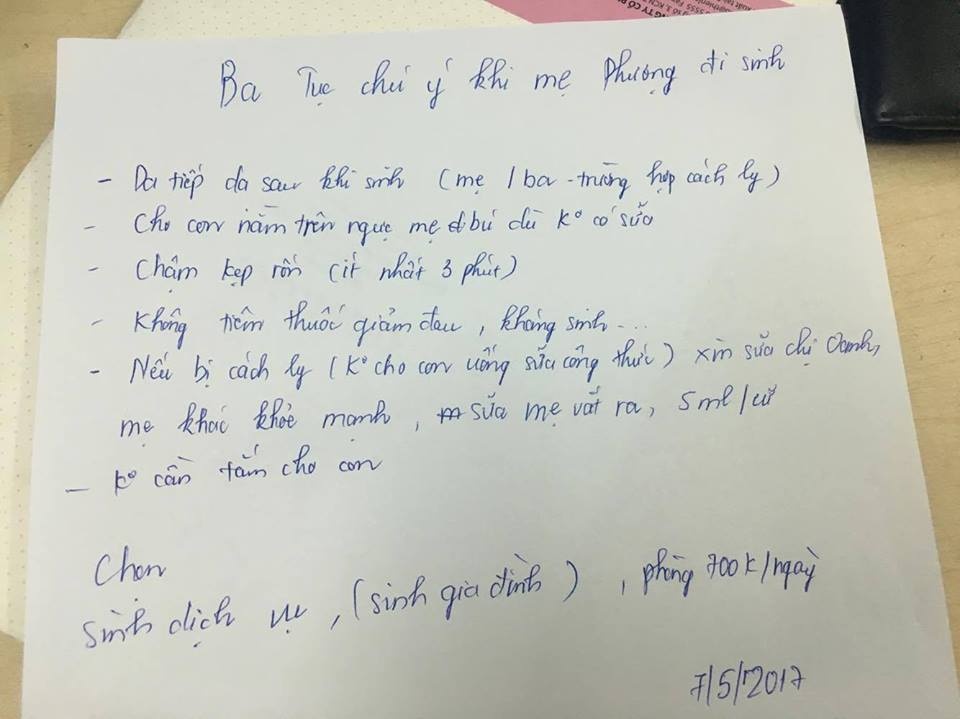 Ba Tục chú ý khi mẹ Phượng đi sinh
- Da tiếp da sau khi sinh (mẹ / ba - trường hợp cách ly)
- Cho con nằm trên ngực mẹ bú dù k° có sữa
- Chậm kẹp rốn (ít nhất 3 phút)
- Không tiêm thuốc giảm đau, kháng sinh...
- Nếu bị cách ly (k° cho con uống sữa công thức) xin sữa chị Oanh,
mẹ khác khỏe mạnh, sữa mẹ vắt ra, 5ml/cữ
- k° cần tắm cho con
Chọn
sinh dịch vụ, (sinh gia đình), phòng 700k/ngày
7/5/2017